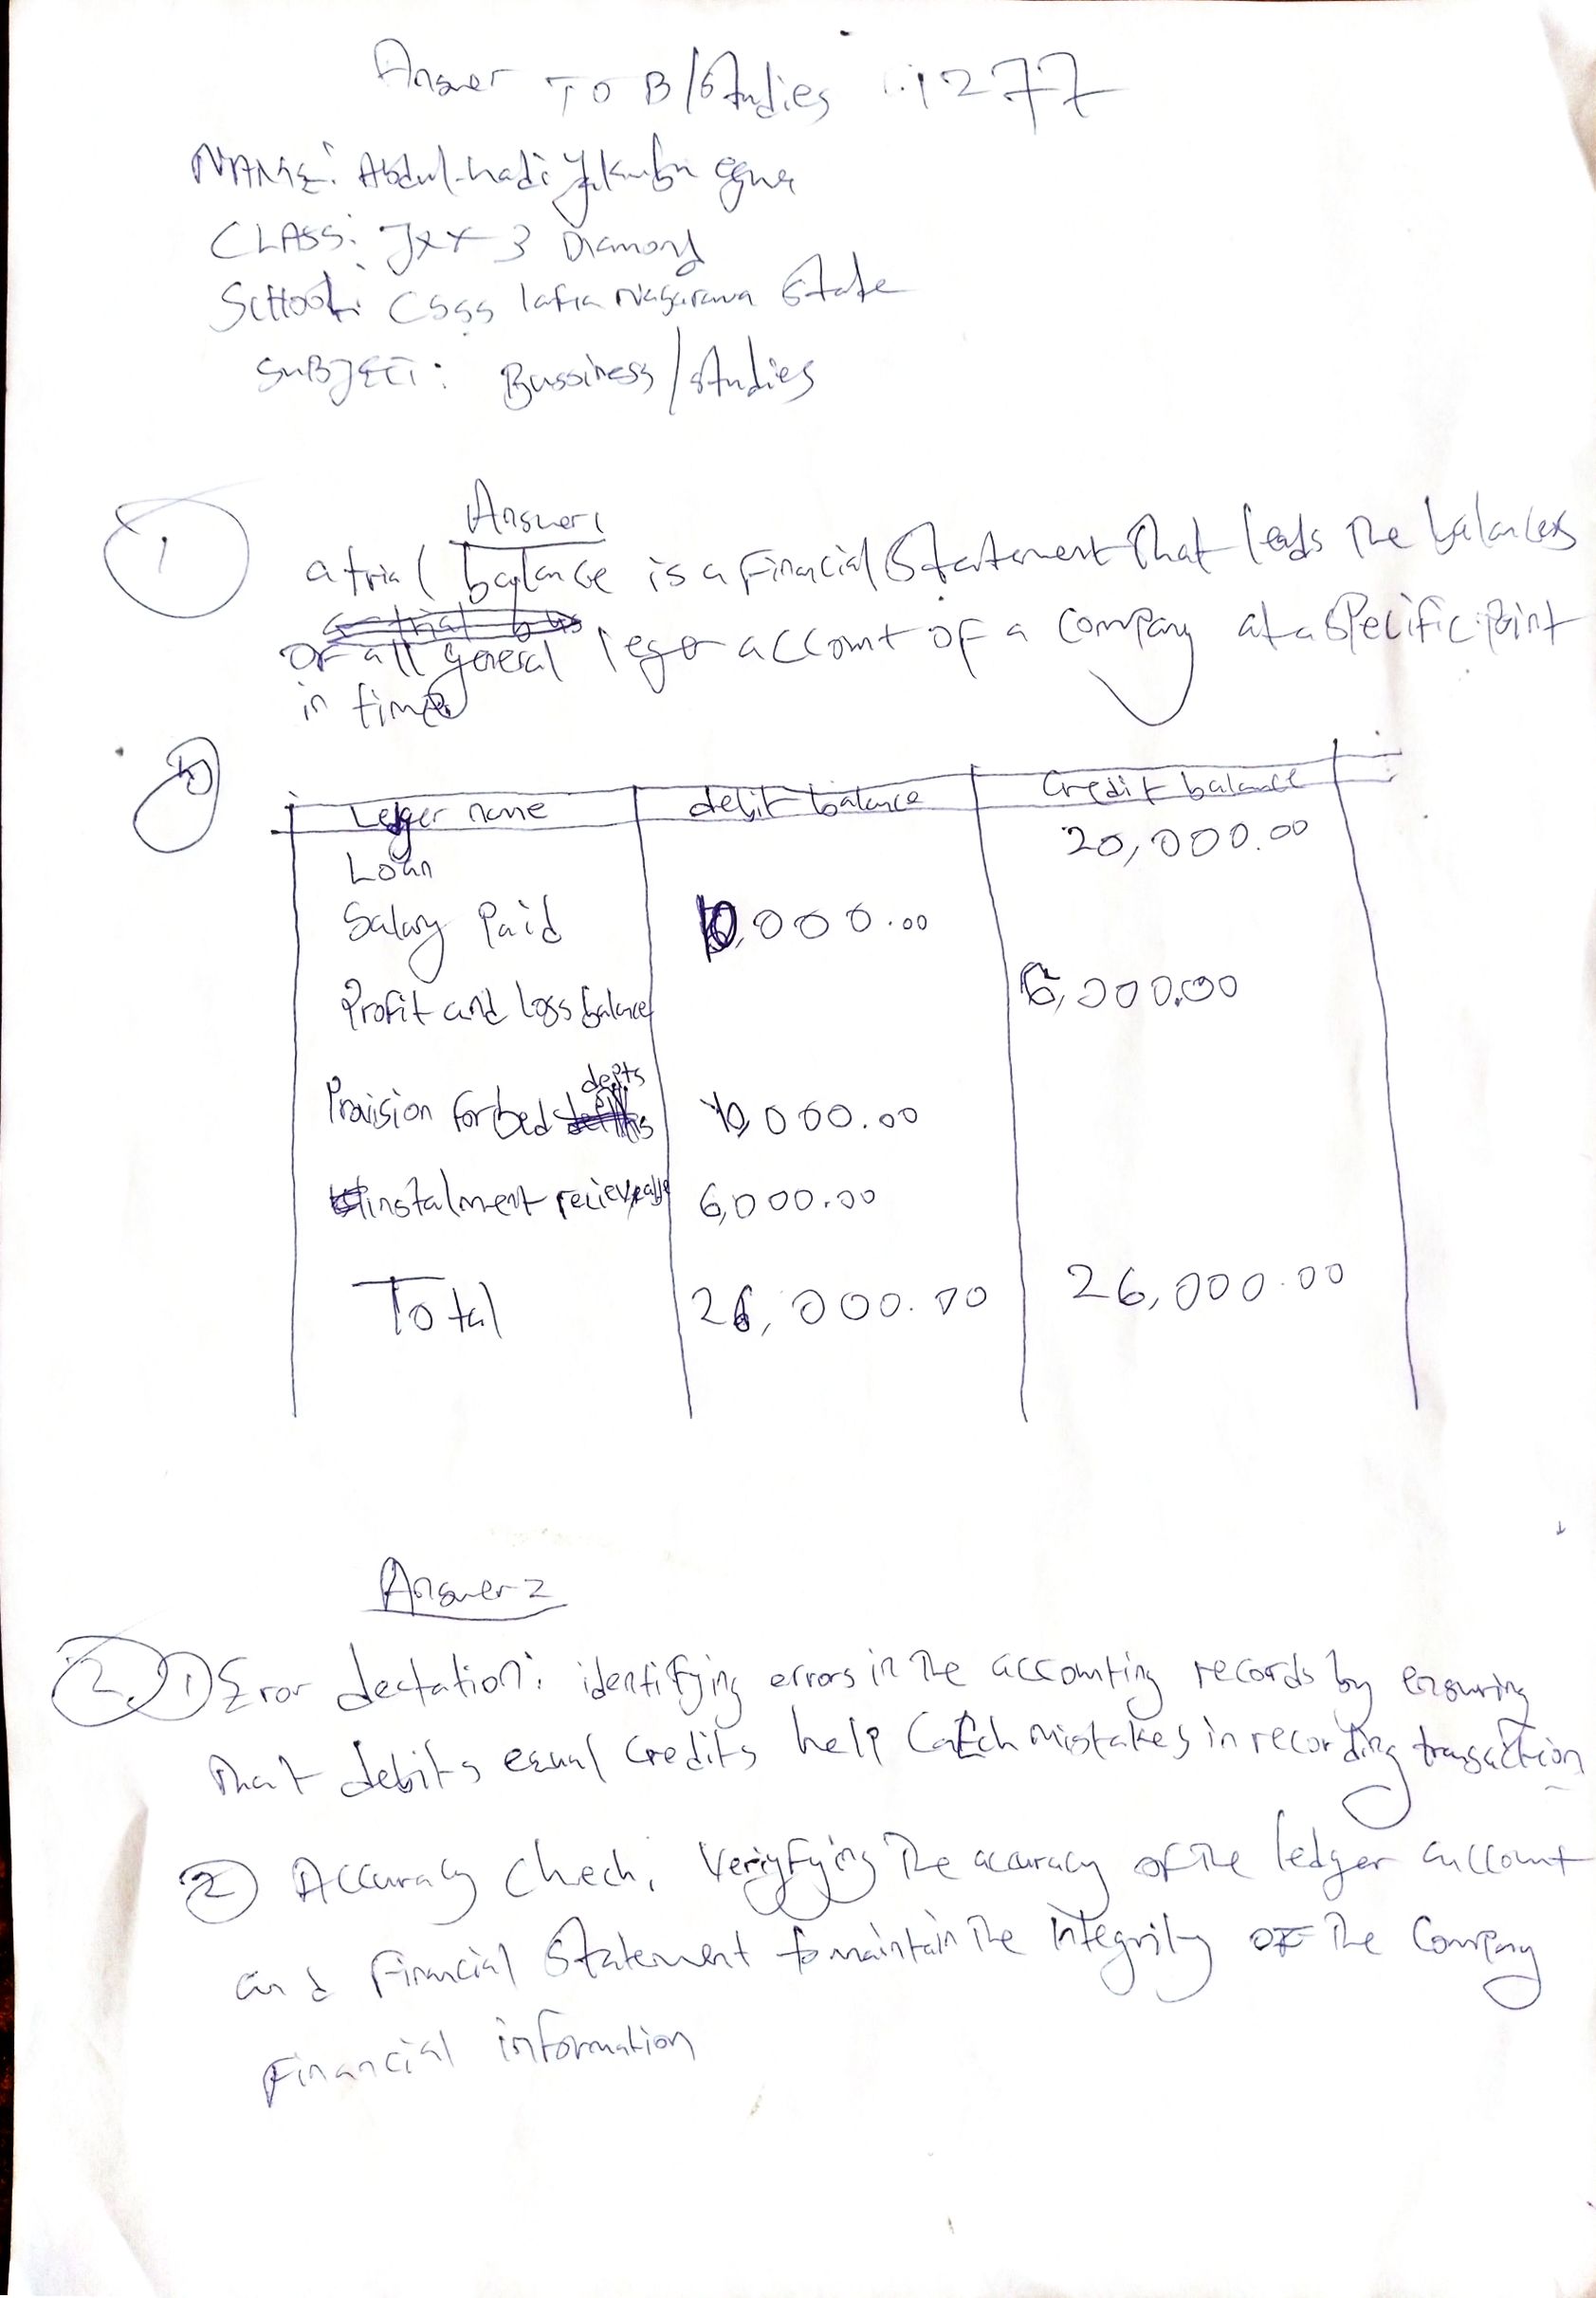 Answer TO B/Studies 1277
NAME: Abdul-hadi Yakubu egwa
CLASS: JXX 3 Diamond
SCHOOL: CSSS lafia Nasarawa State
SUBJECT: Bussiness/studies
1 Answer 1
a trial balance is a Financial Statement That leads The balances
OF all general leger account OF a Company at a Specific point
in time
b
Ledger name debit balance Credit balance
Loan 20,000.00
Salary Paid 10,000.00
Profit and loss balance 6,000.00
Provision For bed depts 10,000.00
instalment recieveable 6,000.00
Total 26,000.00 26,000.00
Answer 2
2. 1) Error dectation: identifying errors in The accounting records by ensuring
That debits equal Credits help Catch mistakes in recording transaction
2 Accuracy Chech, Veriyfying The accuracy of The ledger account
and Financial Statement to maintain The integrity OF The Company
Financial information